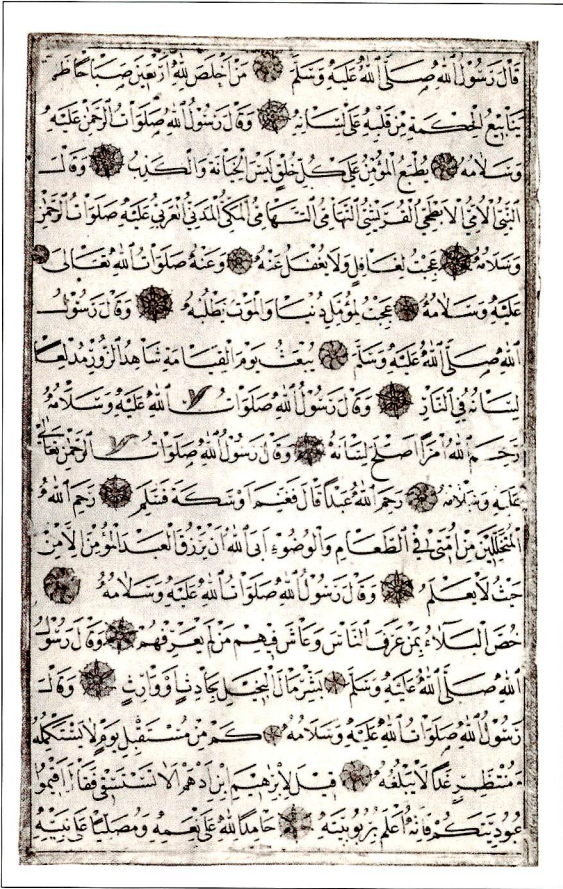 قَالَ رَسُوْلُ اللهِ صَلَّى اللهُ عَلَيْهِ وَسَلَّمَ مَنْ اَخْلَصَ لِلهِ اَرْبَعِيْنَ صَبَاحًا ظَهَرَ
يَنَابِيْعُ الْحِكْمَةِ مِنْ قَلْبِهِ عَلَى لِسَانِهِ وَقَالَ رَسُوْلُ اللهِ صَلَوَاتُ الرَّحْمٰنِ عَلَيْهِ
وَسَلَامُهُ يُطْبَعُ الْمُؤْمِنُ عَلَى كُلِّ خُلُقٍ لَيْسَ الْخِيَانَةَ وَالْكَذِبَ وَقَالَ
النَّبِيُّ الْاُمِّيُّ الْاَبْطَحِيُّ الْقُرَيْشِيُّ التِّهَامِيُّ الْمَكِّيُّ الْمَدَنِيُّ الْعَرَبِيُّ عَلَيْهِ صَلَوَاتُ الرَّحْمٰنِ
وَسَلَامُهُ عَجِبْتُ لِغَافِلٍ وَلَا يُغْفَلُ عَنْهُ وَعَنْهُ صَلَوَاتُ اللهِ تَعَالَى
عَلَيْهِ وَسَلَامُهُ عَجِبْتُ لِمُؤَمِّلِ دُنْيَا وَالْمَوْتُ يَطْلُبُهُ وَقَالَ رَسُوْلُ
اللهِ صَلَّى اللهُ عَلَيْهِ وَسَلَّمَ يُبْعَثُ يَوْمَ الْقِيَامَةِ شَاهِدُ الزُّوْرِ مُدْلِعًا
لِسَانَهُ فِي النَّارِ وَقَالَ رَسُوْلُ اللهِ صَلَوَاتُ اللهِ عَلَيْهِ وَسَلَامُهُ
رَحِمَ اللهُ امْرَأً اَصْلَحَ لِسَانَهُ وَقَالَ رَسُوْلُ اللهِ صَلَوَاتُ الرَّحْمٰنِ تَعَالَى
عَلَيْهِ وَسَلَامُهُ رَحِمَ اللهُ عَبْدًا قَالَ فَغَنِمَ اَوْ سَكَتَ فَسَلِمَ رَحِمَ اللهُ
الْمُتَخَلِّلِيْنَ مِنْ اُمَّتِي فِي الطَّعَامِ وَالْوُضُوْءِ اَبَى اللهُ اَنْ يَرْزُقَ الْعَبْدَ الْمُؤْمِنَ اِلَّا مِنْ
حَيْثُ لَا يَعْلَمُ وَقَالَ رَسُوْلُ اللهِ صَلَوَاتُ اللهِ عَلَيْهِ وَسَلَامُهُ
خُصَّ الْبَلَاءُ بِمَنْ عَرَفَ النَّاسَ وَعَاشَ فِيْهِمْ مَنْ لَمْ يَعْرِفْهُمْ وَقَالَ رَسُوْلُ
اللهِ صَلَّى اللهُ عَلَيْهِ وَسَلَّمَ بَشِّرْ مَالَ الْبَخِيْلِ بِحَادِثٍ اَوْ وَارِثٍ وَقَالَ
رَسُوْلُ اللهِ صَلَوَاتُ اللهِ عَلَيْهِ وَسَلَامُهُ كَمْ مِنْ مُسْتَقْبِلِ يَوْمٍ لَا يَسْتَكْمِلُهُ
وَمُنْتَظِرٍ غَدًا لَا يَبْلُغُهُ قِيْلَ لِاِبْرٰهِيْمَ ابْنِ اَدْهَمَ اَلَا تَسْتَسْقِي فَقَالَ اَقِيْمُوا
عُبُوْدِيَّتَكُمْ فَاِنَّهُ اَعْلَمُ بِرُبُوْبِيَّتِهِ حَامِدًا لِلهِ عَلَى نِعَمِهِ وَمُصَلِّيًا عَلَى نَبِيِّهِ